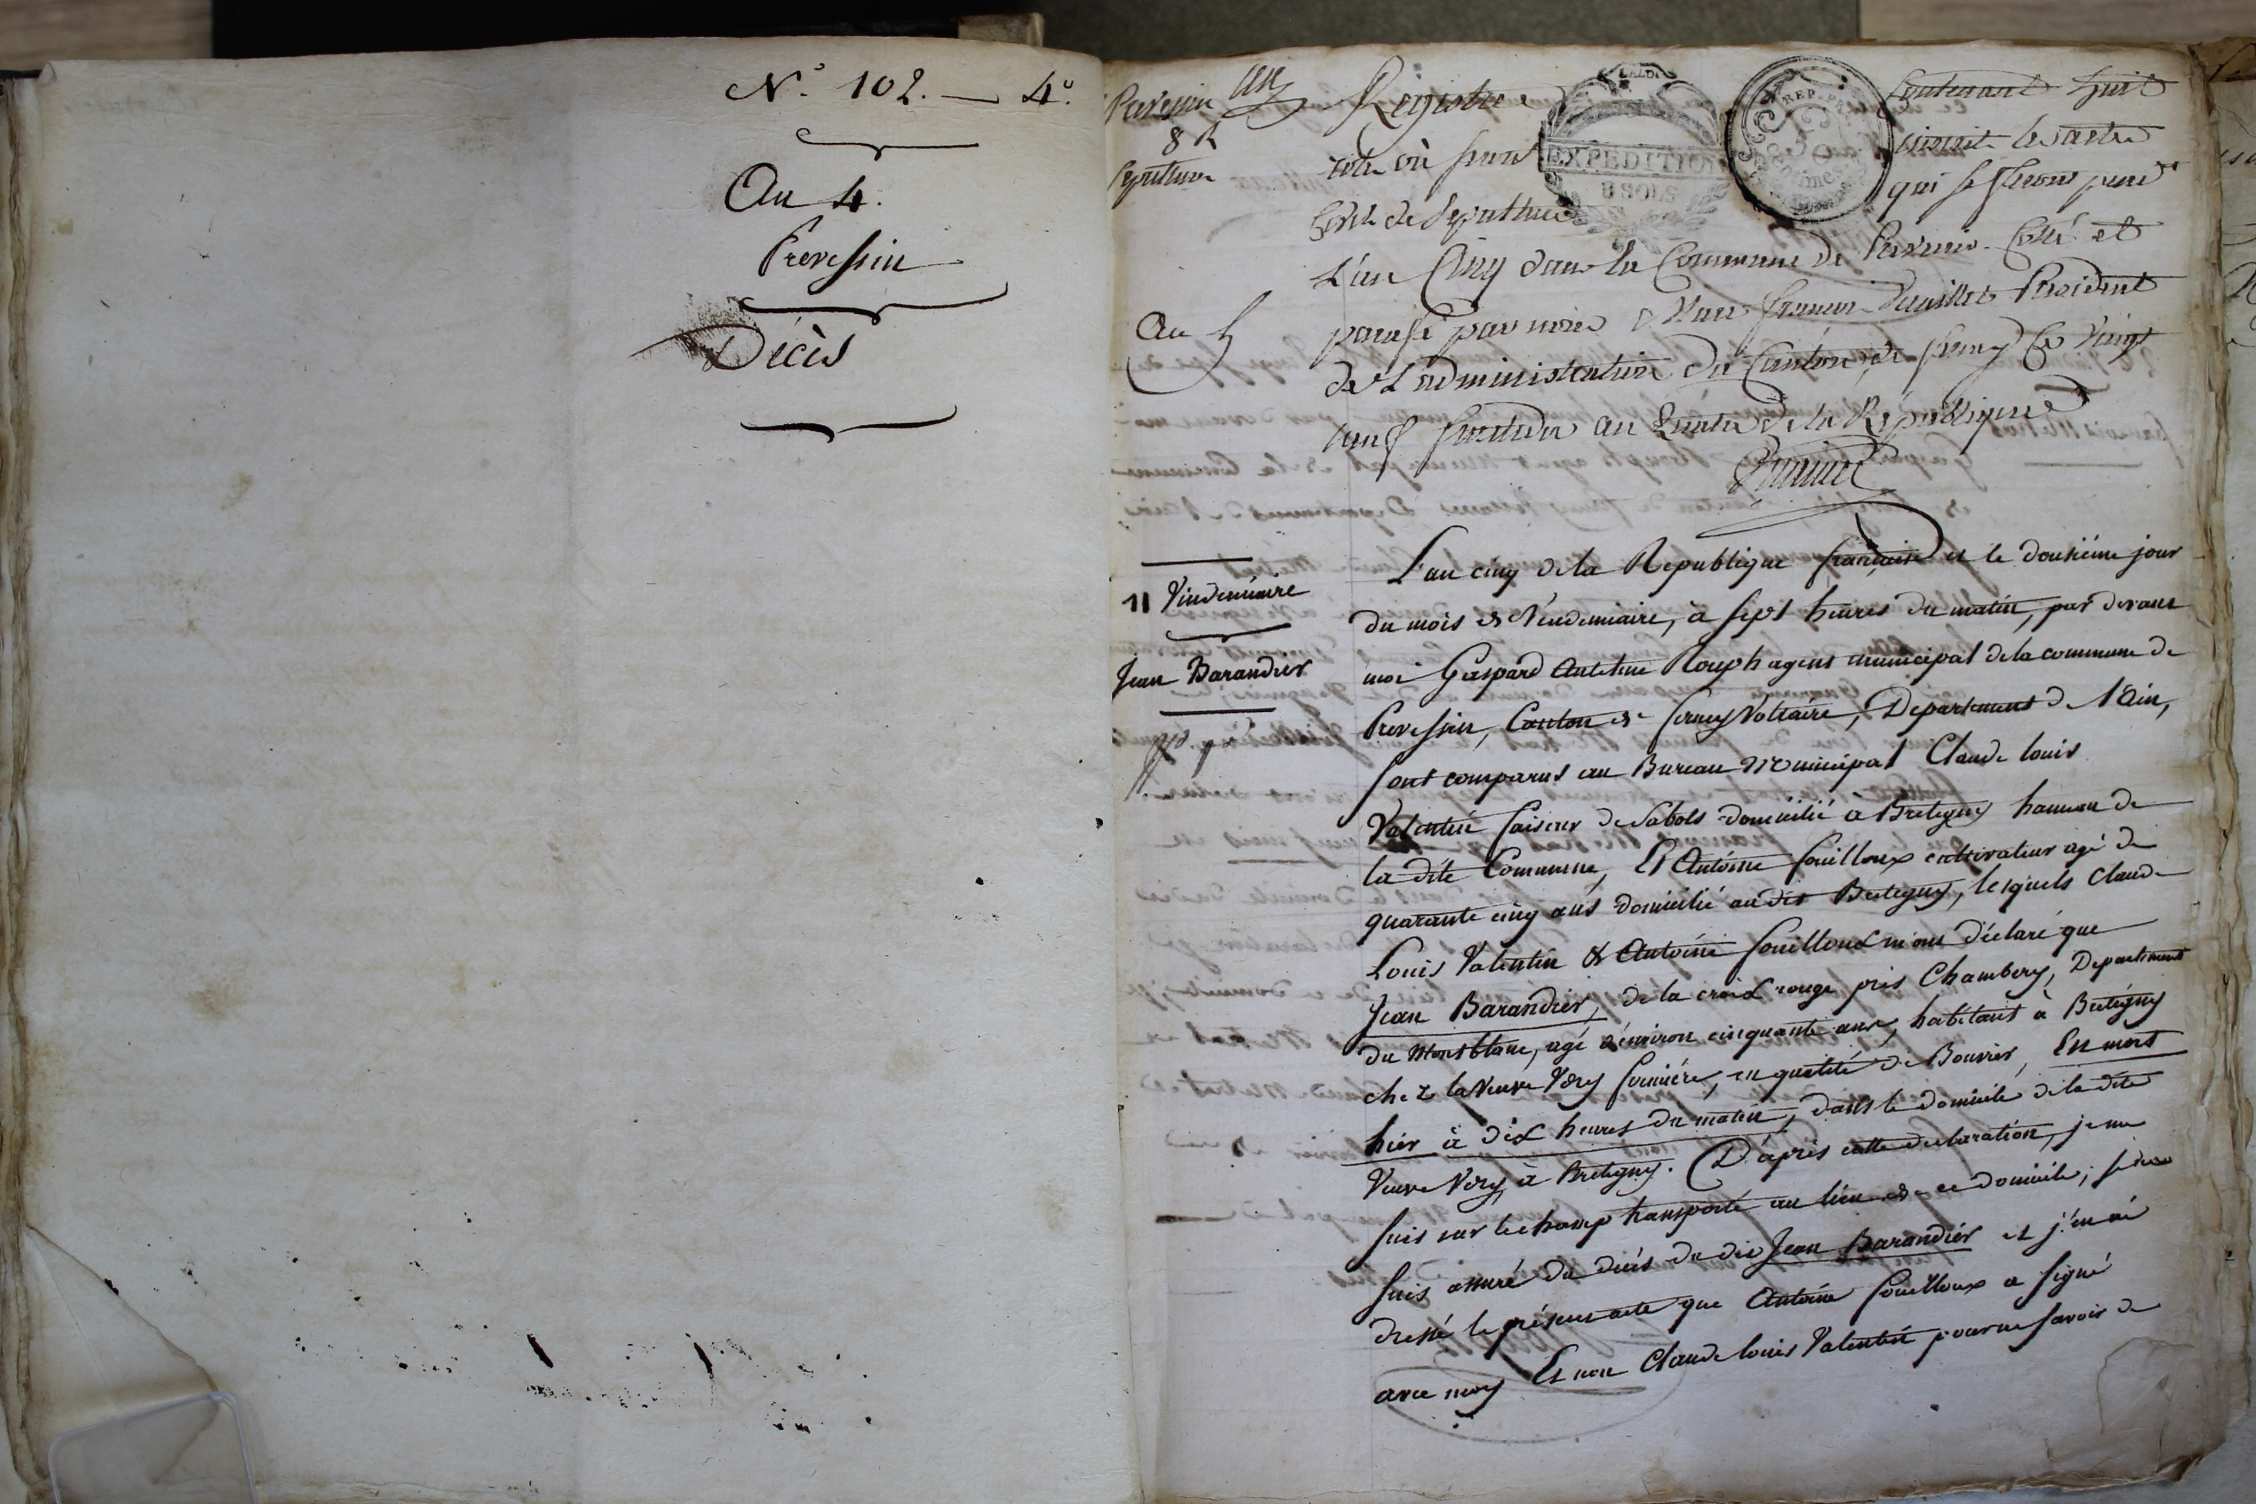 N.° 102. — 4.°
An 4.
Prevessin
Décès
Prevessin
8 h
Sepulture
An 5
Registre contenant huit
EXPEDITION
8 SOLS
REP. FRA
rôle où seront inscrit les actes
civils de sepulture qui se feront pend.t
L'an Cinq dans la Commune de Prevessin. Coté et
parafé par moi françois Président
de L'administration du Canton de ferney Ce vingt
neuf fructidor an Quatre de la République
L'an cinq de la Republique française et le dousiéme jour
11 Vindemiaire
du mois de Vendemiaire, à sept heures du matin, par devant
Jean Barandier
moi Gaspard Antoine Rouph agent municipal de la commune de
Prevessin, Canton de ferney Voltaire, Departement de l'Ain,
sont comparus au Bureau Municipal Claude louis
Valentin faiseur de sabots domicilié à Bretegny hameau de
la dite Commune, Et Antoine fouilloux cultivateur agé de
quarante cinq ans domicilié au dit Bretegny, lesquels Claude
Louis Valentin & Antoine fouilloux m'ont déclaré que
Jean Barandier, de la croix rouge près Chambery, Departement
du Montblanc, agé d'environ cinquante ans, habitant à Bretégny
chez la Veuve Véry fermiére, en qualité de Bouvier, Est mort
hier à dix heures du matin, dans le domicile de la dite
Veuve Véry, à Bretegny. D'après cette declaration, je me
suis sur le champ transporté au lieu de ce domicile, je me
suis assuré du décés du dit Jean Barandier et j'en ai
dressé le présent acte que Antoine fouilloux a signé
avec moy Et non Claude louis Valentin pour ne savoir de